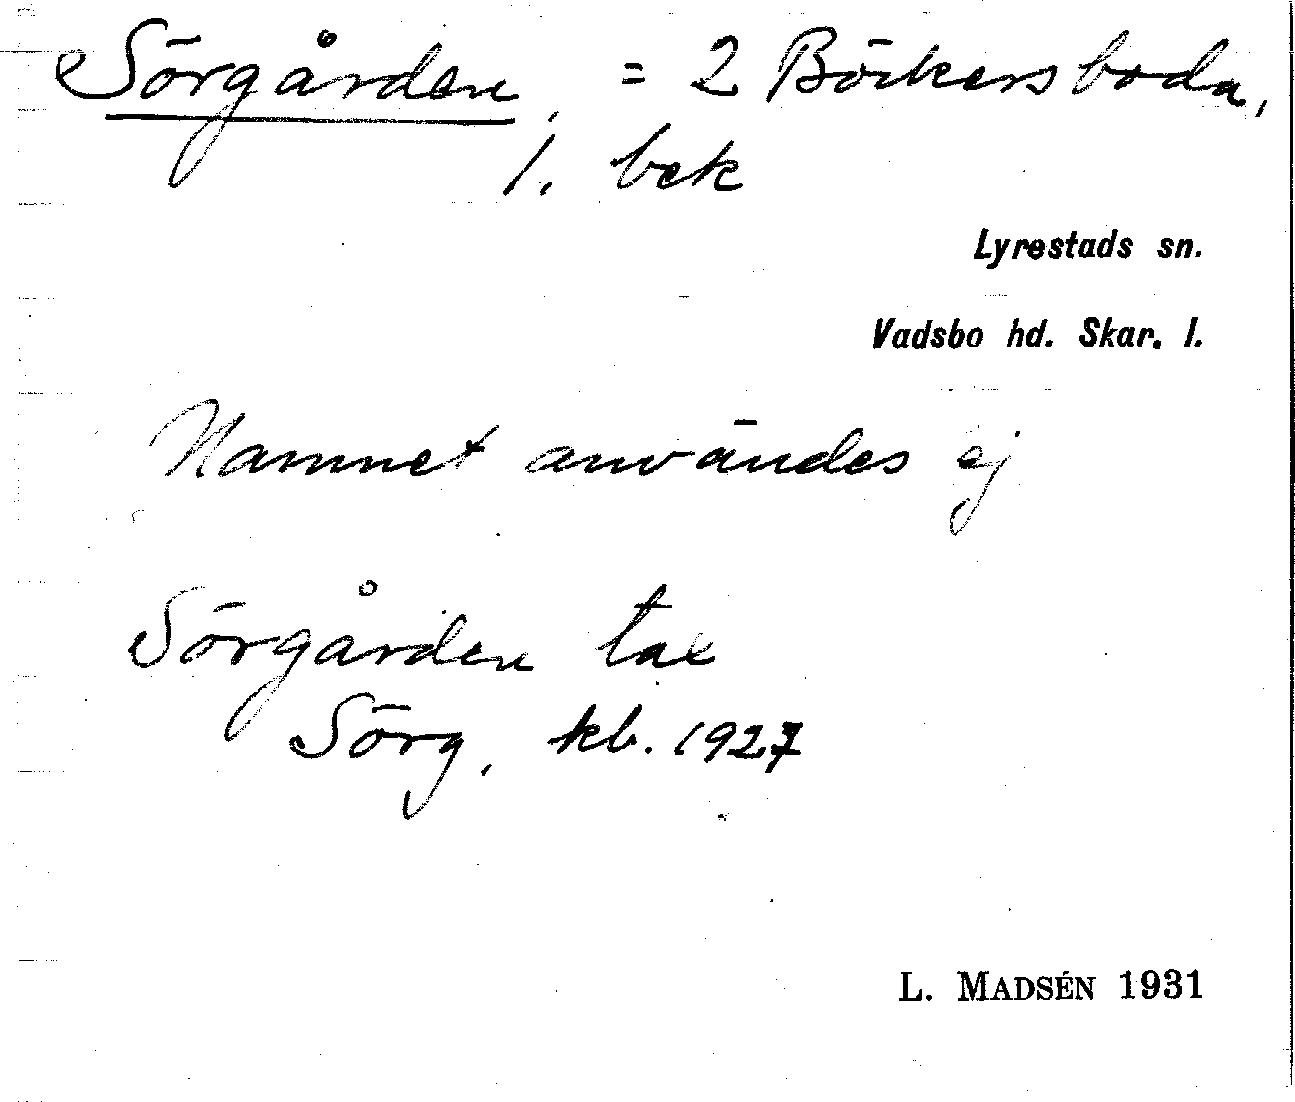 Sörgården, = 2 Börkersboda,
1. bek
Lyrestads sn.
Vadsbo hd. Skar. l.
Namnet användes ej
Sörgården tax
Sörg. kb. 1927
L. MADSÉN 1931